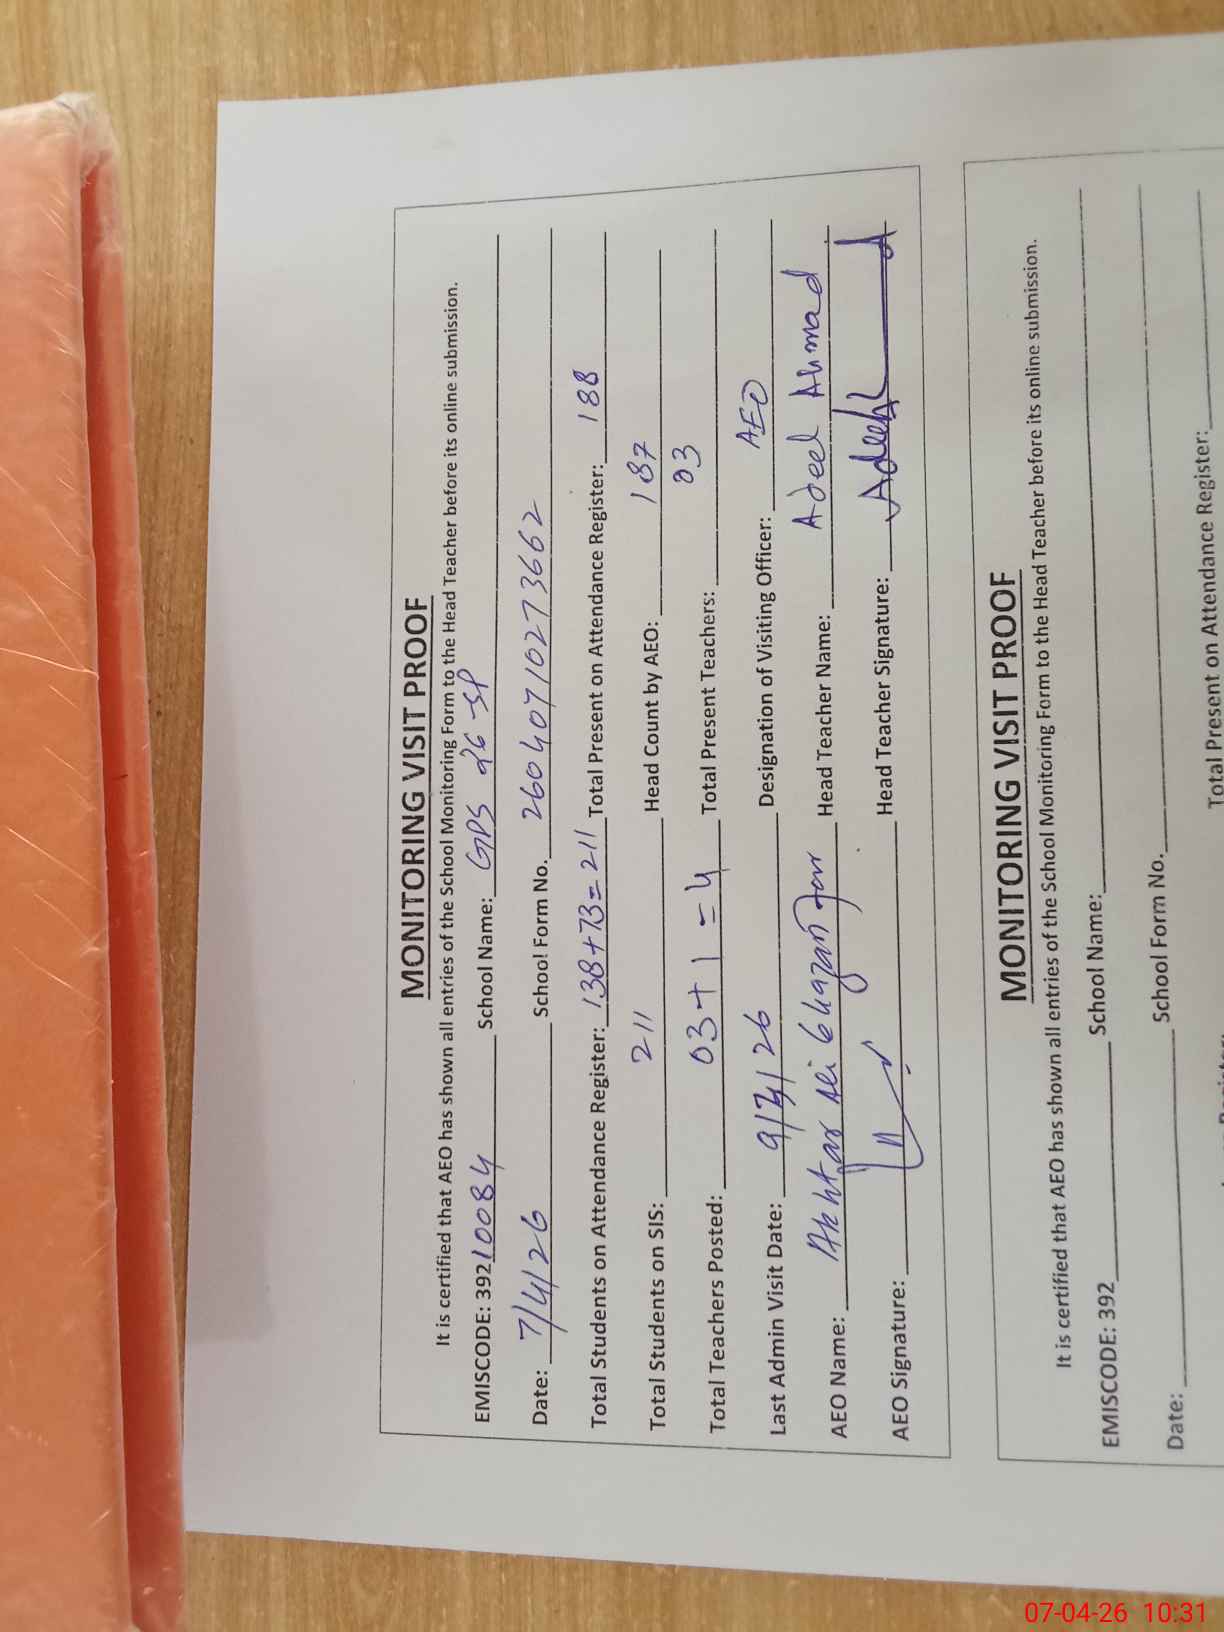 MONITORING VISIT PROOF
It is certified that AEO has shown all entries of the School Monitoring Form to the Head Teacher before its online submission.
EMISCODE: 39210084 School Name: GPS 26-SP
Date: 7/4/26 School Form No. 26040710273662
Total Students on Attendance Register: 138+73=211 Total Present on Attendance Register: 188
Total Students on SIS: 211 Head Count by AEO: 187
Total Teachers Posted: 03+1=4 Total Present Teachers: 03
Last Admin Visit Date: Designation of Visiting Officer: AEO
AEO Name: Akhtar Ali Ghazanfar Head Teacher Name: Adeel Ahmad
AEO Signature: Head Teacher Signature: Adeel
MONITORING VISIT PROOF
It is certified that AEO has shown all entries of the School Monitoring Form to the Head Teacher before its online submission.
EMISCODE: 392 School Name:
Date: School Form No.
Total Present on Attendance Register:
07-04-26 10:31